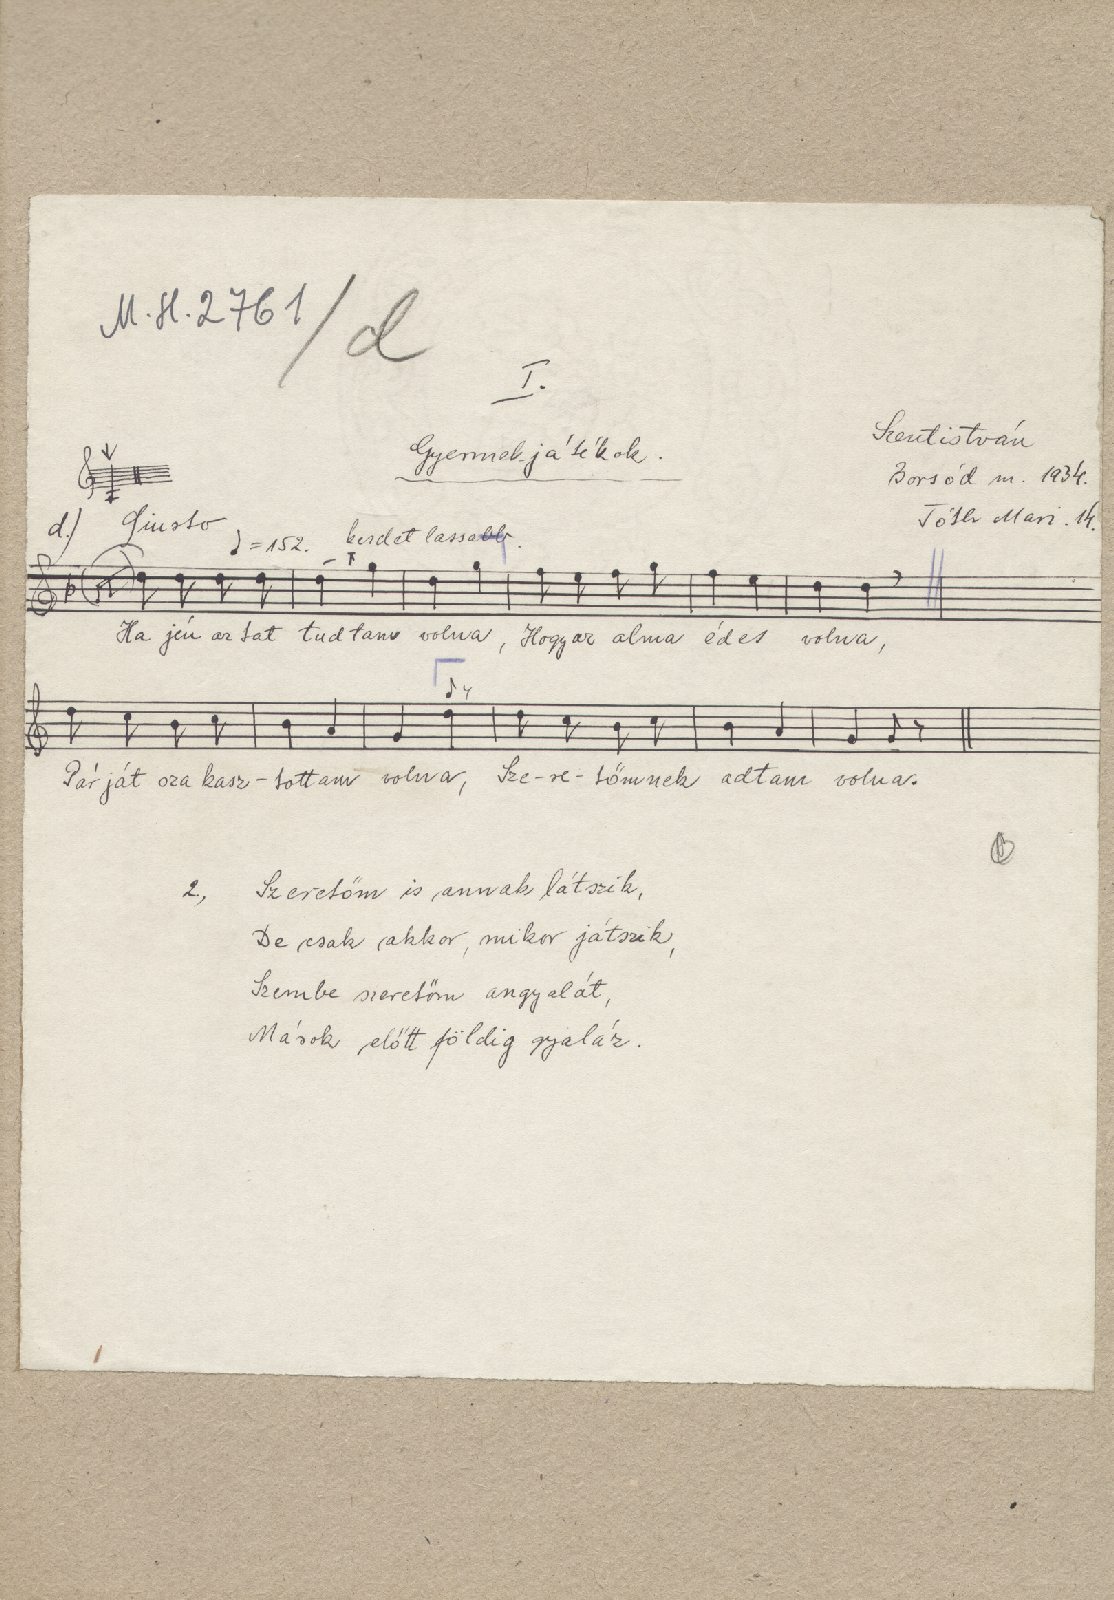 M.H. 2761/d
I.
Gyermekjátékok.
Szentistván
Borsód m. 1934.
Tóth Mari. 14.
d.) Giusto
♩ = 152. kezdet lassabb.
Ha jén aztat tudtam volna, Hogy az alma édes volna,
Párját sza kasz-tottam volna, Sze-re-tőmnek adtam volna.
2., Szeretőm is annak látszik,
De csak akkor, mikor játszik,
Szembe szeretőm angyalát,
Mások előtt földig gyaláz.